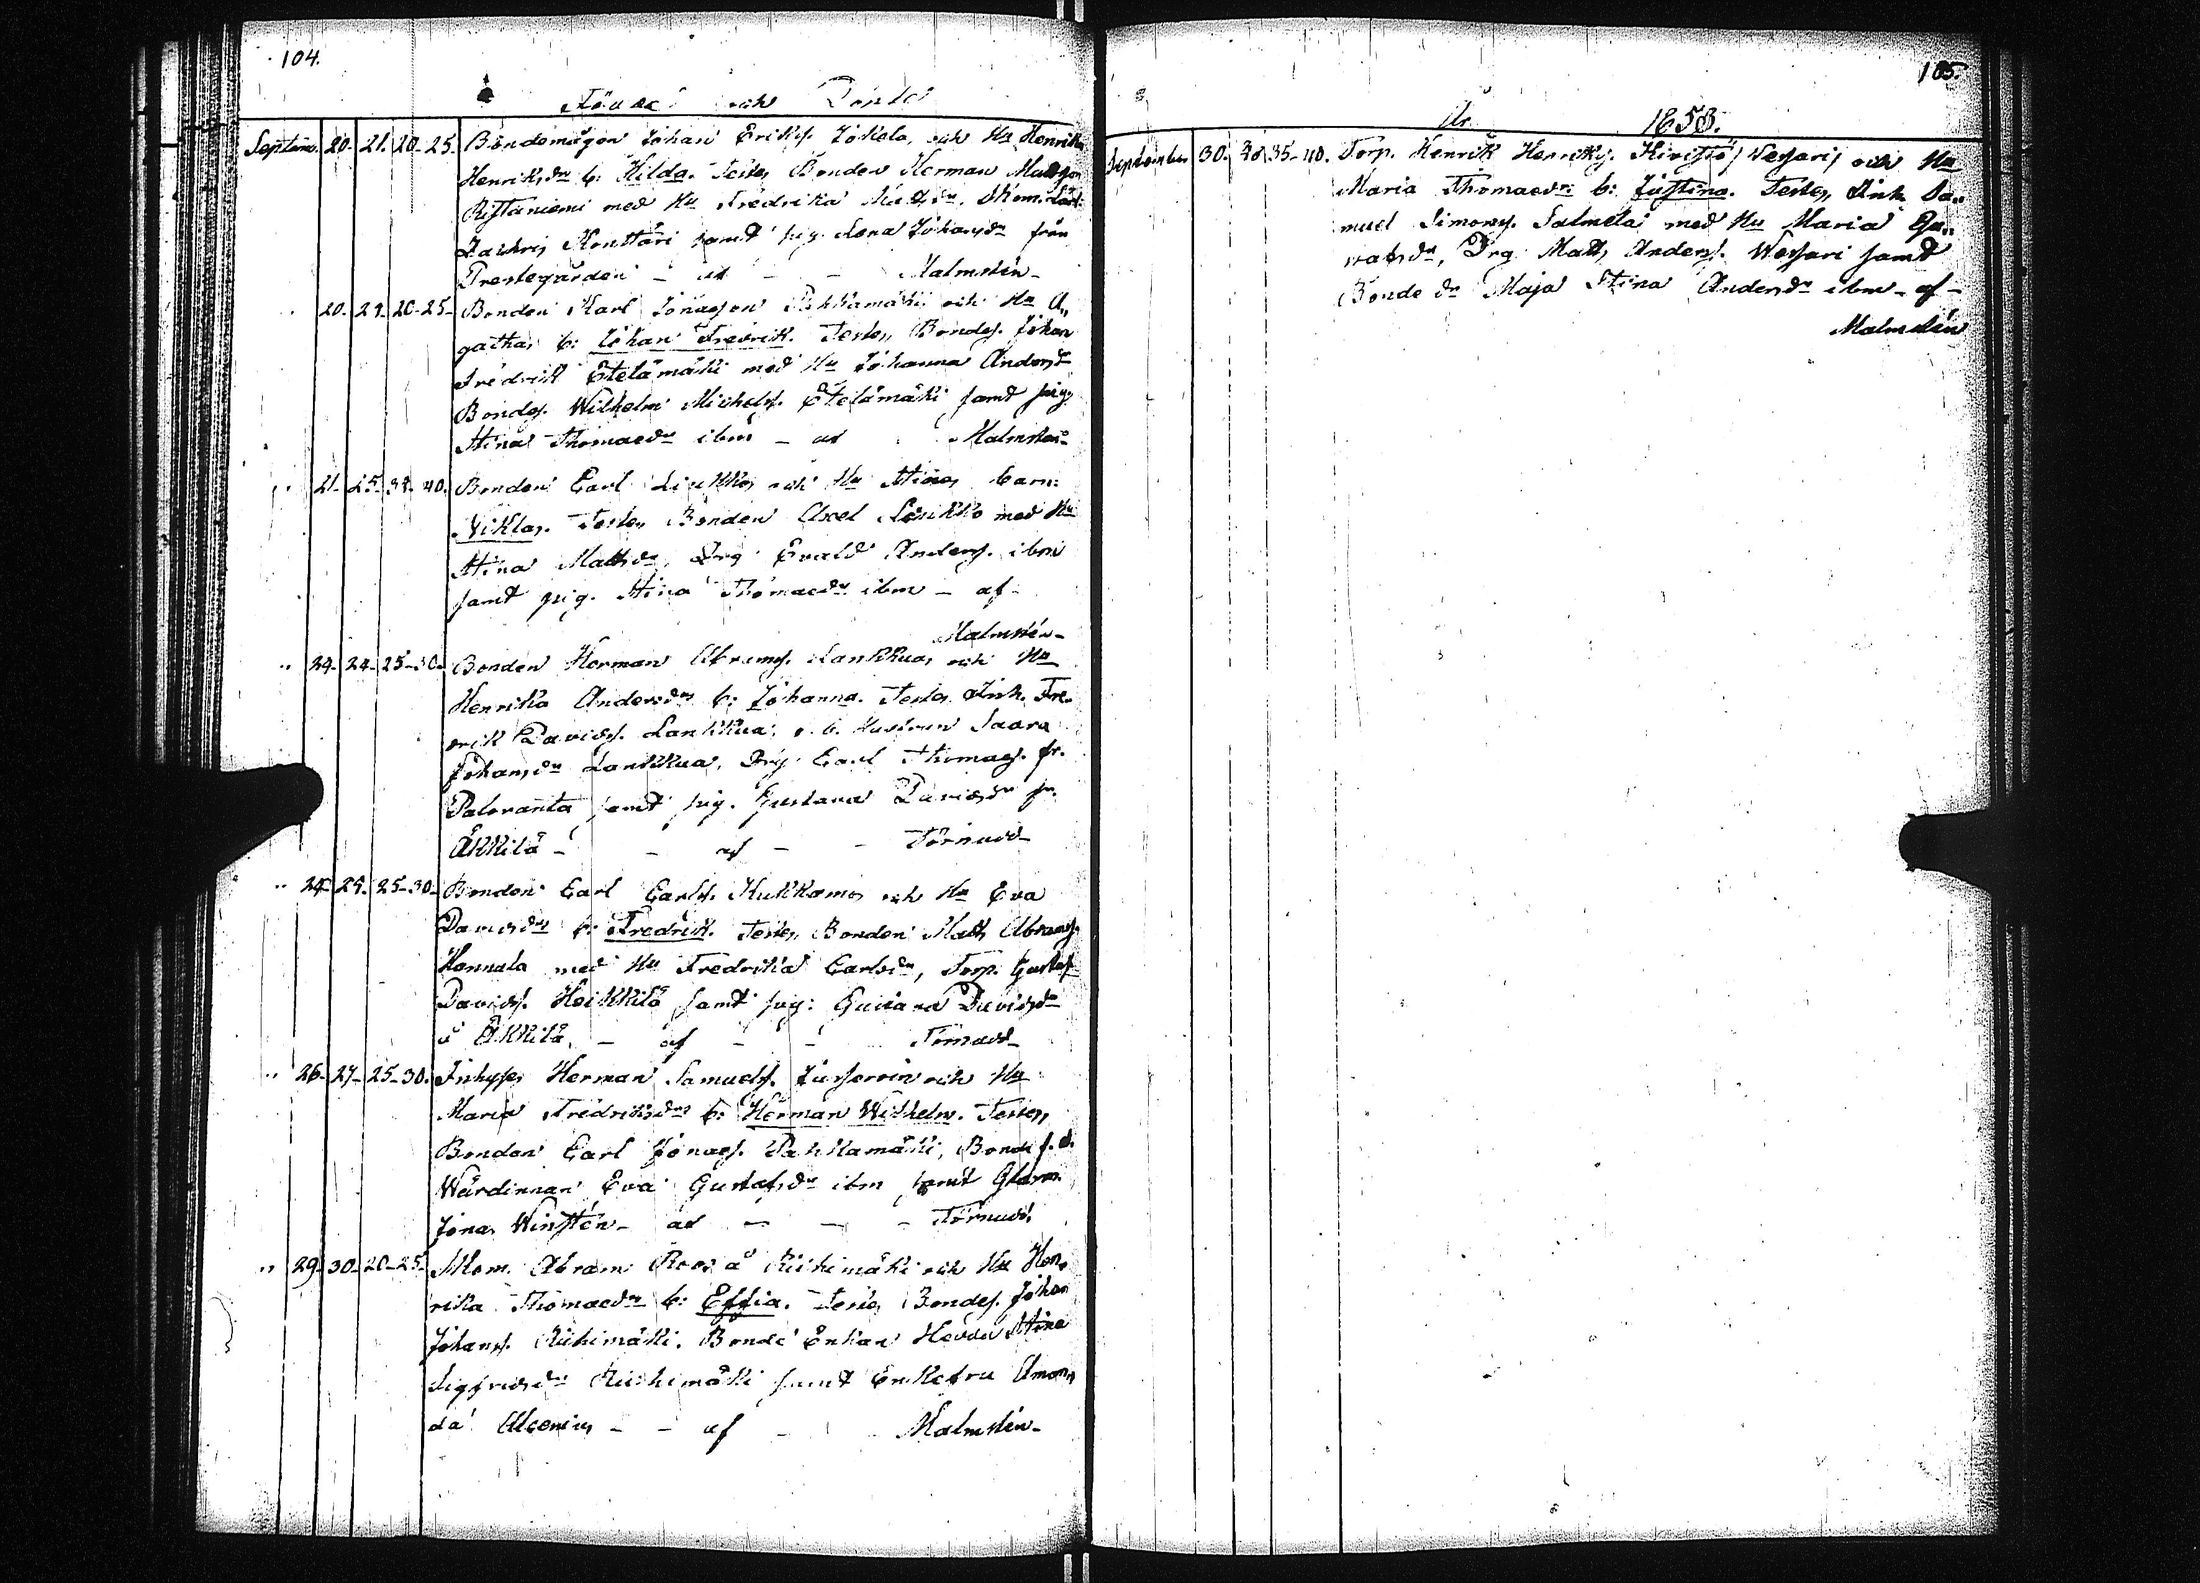 104.
Födde och Döpte
Septem. 20. 21. 20-25. Bondemågen Johan Eriks. Jokela, och Hu Henrika
Henriksdr b: Hilda. Testes Bonden Herman Mattsson
Ristaniemi med Hu Fredrika Skom. Lärl.
Zachris Konttäri samt pig. Lena Johansdr från
Prestegården - af - - Malmstén -
20. 21. 20-25. Bonden Karl Jonasson Pahkamäki och Hu A„
gatha, b: Johan Fredrik. Testes, Bondes. Johan
Fredrik Etelämäki med Hu Johanna Andersdr
Bondes. Wilhelm Michels. Etelämäki samt pig.
Stina Thomasdr ibm - af Malmstén
21. 25. 35. 40. Bonden Carl Liukko, och Hu Stina, barn:
Niklas. Testes Bonden Axel Liukko med Hu
Stina Mattsdr, Drg Evald Anders. ibm
samt pig. Stina Thomasdr ibm - af -
Malmstén -
24. 24. 25-30. Bonden Herman Abrams. Lankkua, och Hu
Henrika Andersdr b: Johanna. Testes Inh. Fre„
drik Davids. Lankkua, o. b. Hustrun Saara
Johansdr Lankkua, Drg Carl Thomas. fr.
Paloranta samt pig. Gustava Davidsdr fr.
Äkkilä - - af - - Törnudd -
24. 25. 25-30. Bonden Carl Carls. Kukkamo, och Hu Eva
Davidsdr b: Fredrik. Testes, Bonden Matts Abrams.
Hannala med Hu Fredrika Carlsdr, Torp. Gustaf
Davids. Heikkilä samt pig: Gustava Davidsdr
å Äkkilä, - af - - Törnudd -
26. 27. 25-30. Inhyses Herman Samuels. och Hu
Maria Fredriksdr b: Herman Wilhelm. Testes,
Bonden Carl Jonas. Pahkamäki, Bonde f. d.
Wärdinnan Eva Gustafsdr ibm samt
Jona, Winstén - af - - - Törnudd.
29. 30. 20-25. Skom. Abram Roos å Riihimäki och Hu Hen„
rika Thomasdr b: Effia. Testes Bondes. Johan
Johans. Riihimäki. Bonde Enkan Hedda Stina
Sigfridsdr Riihimäki samt Enkefru Aman„
da Alcenius - - af - Malmstén -
105.
År 1858.
September 30. 30. 35-40. Torp. Henrik Henriks. Kivistö / Vessari / och Hu
Maria Thomasdr b: Justina. Testes, Inh. Sa„
muel Simons. Salmela med Hu Maria Gu„
stafsdr, Drg. Matts Anders. Wessari samt
Bonde dr Maja Stina Andersdr ibm - af -
Malmstén